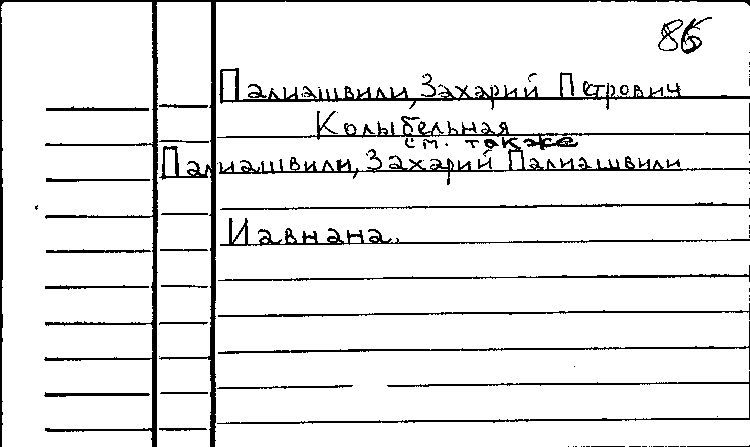 86
Палиашвили, Захарий Петрович
Колыбельная
см. также
Палиашвили, Захарий Палиашвили
Иавнана.